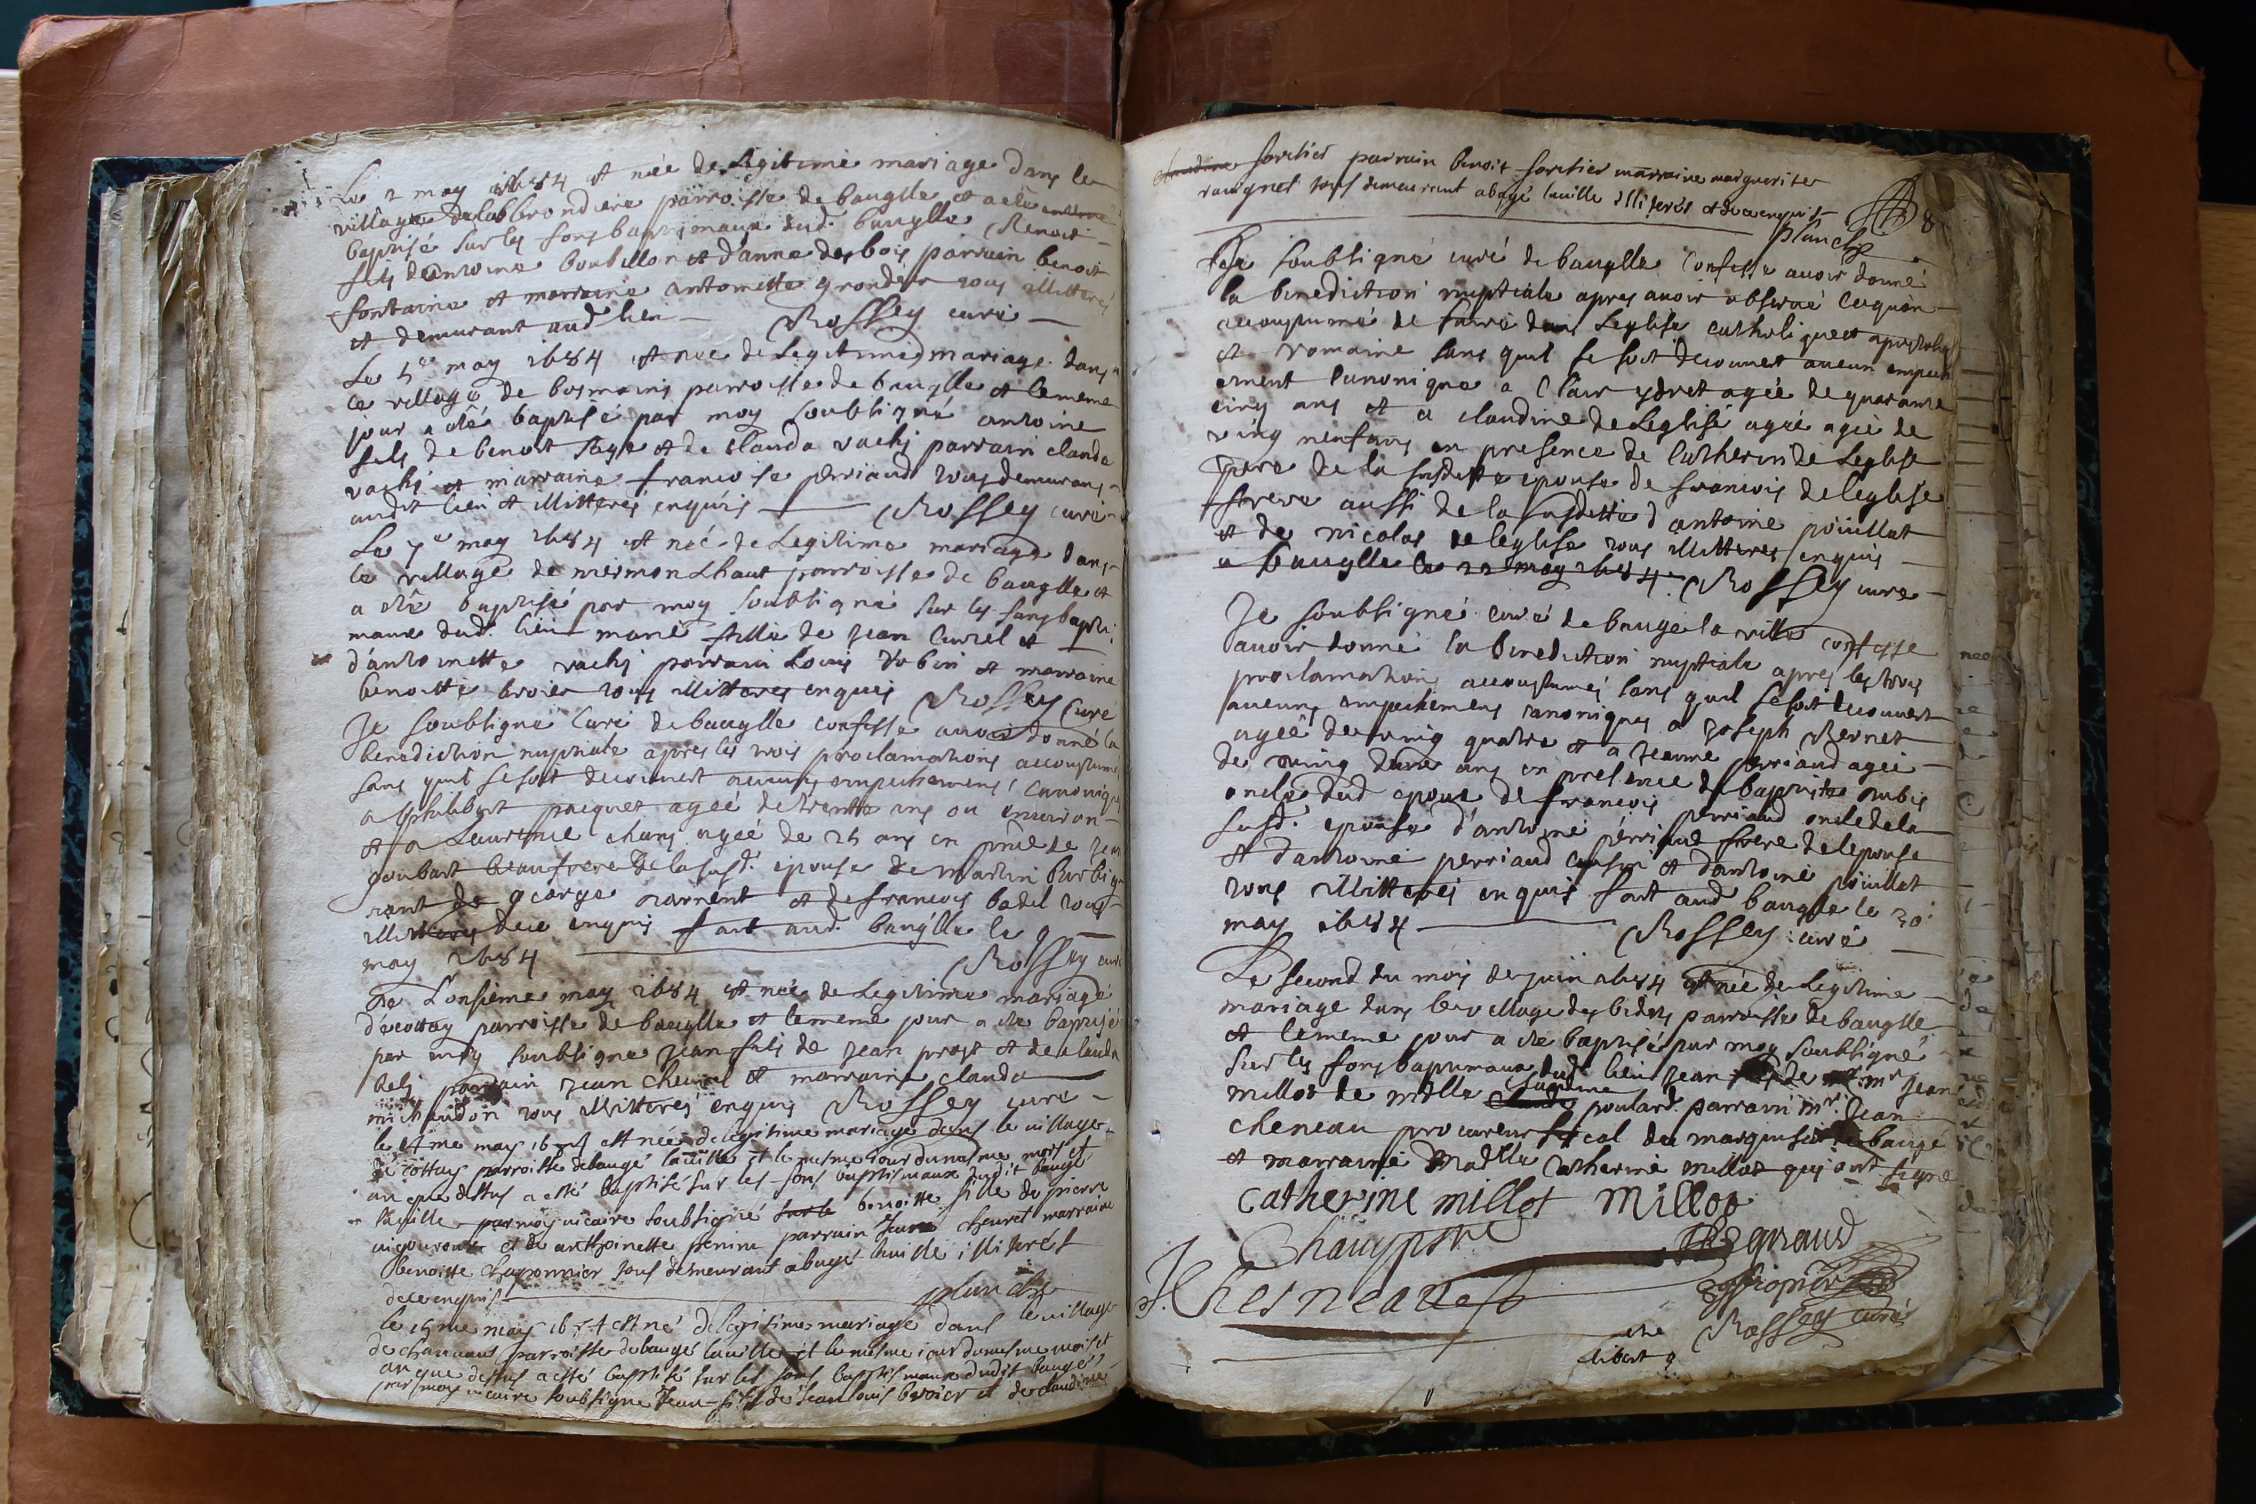 Le 2 may 1684 est née de legitime mariage dans le
village de la blondiere parroisse de bauglle et a esté
baptisé sur les fons baptimaux dud. baugllle Benoit
fils d'antoine boubillon et d'anne desbois parrain benoit
fontaine et marraine antoinette grondier tous illitterés
et demurant aud lieu Rossey curé
Le 5e may 1684 est née de legitime mariage dans
le village de bosmains parroisse de bauglle et le meme
jour a été baptisé par moy soubsigné antoine
fils de benoit page et de clauda vachj parrain claude
vachj et marraine francoise perriaud tous demurans
audit lieu et illitterés enquis Rossey curé
Le 7e may 1684 est née de legitime mariage dans
le village de mermont haut parroisse de baugllle et
a été baptisé par moy soubsigné sur les fons bapti
maux dud. lieu marie fillie de jean curel et
d'antoinette vachj parrain Louis Robin et marraine
benoitte broier tous illitteres enquis Rossey Curé
Je soubsigné Curé de baugllle confesse avoir donné la
benediction nuptiale apres les trois proclamations accoustumé
sans quil se soit decouvert aucuns empechemens canonique
a philibert pacquet agéé de trente ans ou environ
et a Laurence chans agéé de 25 ans en pñce de jean
goubart beaufrere de la susd. epouse de martin
rant de george nament et de francois badel tous
illitteres de ce enquis fait aud. baugllle le 9
may 1684 Rossey curé
Le L'onsieme may 1684 est née de legitime mariage
d'ecottay parroisse de baugllle et le meme jour a été baptisé
par moy soubsigne jean fils de jean prost et de clauda
parrain jean cheurel et marraine clauda
michaudon tous illitterés enquis Rossey curé
le 14me may 1684 est née de legitime mariage dans le village
de cottay parroisse de baugé la ville et le mesme iour du mesme mois et
an que dessus a esté baptisé sur les fons baptismaux dudit baugé
la ville par moy vicaire soubsigné sur le benoitte fille de pierre
vigouroux et de anthoinette fenine parrain Jean cheuret marraine
benoitte charponnier tous demeurant a baugé la ville illiterés
de ce enquis planche
le 15me may 1684 est né de legitime mariage dans le village
de chanuans parroisse de baugé la ville et le mesme iour du mesme mois et
an que dessus a esté baptisé sur les fons baptismaux dudit baugé
par moy vicaire soubsigne Jean fils de Jean louis broier et de claudine
claudine foretier parrain benoit foretier marraine marguerite
raugnet tous demeurant a baugé la ville illiterés et de ce enquis
planche 8
Je soubsigné curé de baugllle Confesse avoir donné
la benediction nuptiale apres avoir observé ce quon
accoustumé de faire dans Leglise catholique apostolique
et romaine sans quil se soit decouvert aucun empech
ement canonique a Clair ydret agéé de quarante
cinq ans et a claudine de Leglise agéé agéé de
ving neuf ans en presence de Catherin de Leglise
pere de la susdette epouse de francois de leglise
frere aussi de la susdette d'antoine poüillat
et de nicolas de leglise tous illitteres enquis
a baugllle le 22 may 1684 Rossey curé
Je soubsigné curé de bauge la ville confesse
avoir donné la benediction nuptiale apres les trois
proclamations accoustumés sans quil se soit decouvert
aucuns empechemens canoniques a joseph Bernet
agéé de ving quatre et a jeanne perriaud agéé
de ving deux ans en presence de baptiste
oncle dud epoux de francois perriaud oncle de la
susd. epouse d'antoine perriaud frere de lepouse
et d'antoine perriaud cousin et d'antoine poüillat
tous illitterés enquis fait aud baugllle le 30e
may 1684 Rossey curé
Le second du mois de juin 1684 est née de legitime
mariage dans le village des bidons parroisse de baugllle
et le meme jour a été baptisé par moy soubsigné
sur les fons baptimaux dud. lieu jean fils de mr jean
millot de mdlle claude poulard. parrain mr. jean
cheneau procureur fiscal du marquisat de baugé
et marraine Madlle Catherine millot qui ont signé
catherine millot Millot
giraud
J. Chesneau
Rossey curé